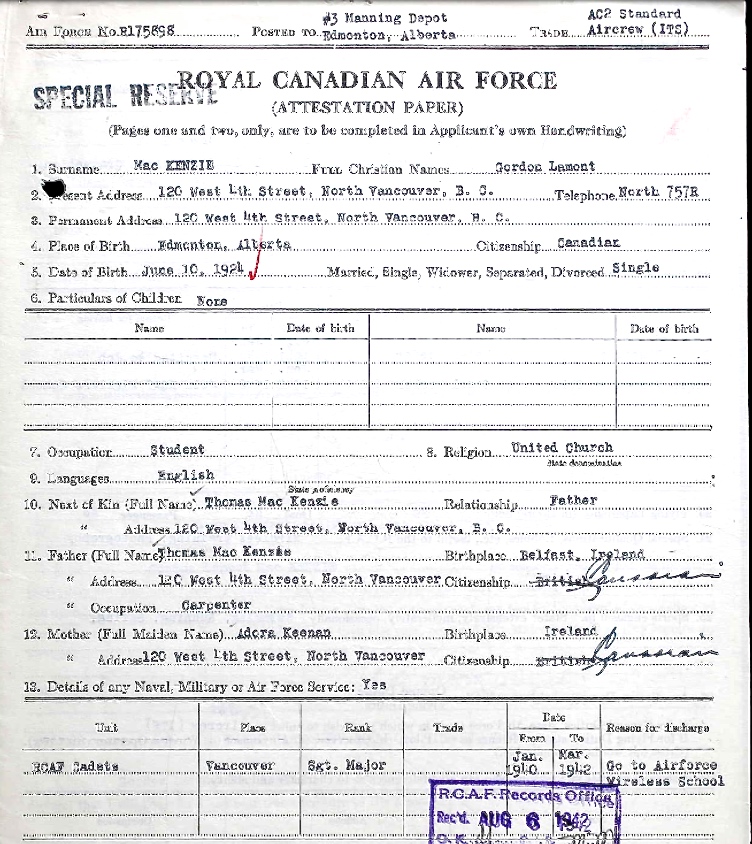 #3 Manning Depot AC2 Standard
AIR FORCE No. R175898 POSTED TO Edmonton, Alberta TRADE Aircrew (ITS)
SPECIAL RESERVE
ROYAL CANADIAN AIR FORCE
(ATTESTATION PAPER)
(Pages one and two, only, are to be completed in Applicant's own Handwriting)
1. Surname Mac KENZIE FULL Christian Names Gordon Lamont
2. Present Address 120 West 4th Street, North Vancouver, B. C. Telephone North 757R
3. Permanent Address 120 West 4th Street, North Vancouver, B. C.
4. Place of Birth Edmonton, Alberta Citizenship Canadian
5. Date of Birth June 10, 1924 Married, Single, Widower, Separated, Divorced Single
6. Particulars of Children None
Name Date of birth Name Date of birth
7. Occupation Student 8. Religion United Church
State denomination
9. Languages English
10. Next of Kin (Full Name) Thomas Mac Kenzie Relationship Father
" Address 120 West 4th Street, North Vancouver, B. C.
11. Father (Full Name) Thomas Mac Kenzie Birthplace Belfast, Ireland
" Address 120 West 4th Street, North Vancouver Citizenship British Canadian
" Occupation Carpenter
12. Mother (Full Maiden Name) Adora Keenan Birthplace Ireland
" Address 120 West 4th Street, North Vancouver Citizenship British Canadian
13. Details of any Naval, Military or Air Force Service: Yes
Unit Place Rank Trade Date Reason for discharge
From To
RCAF Cadets Vancouver Sgt. Major Jan. 1940 Mar. 1942 Go to Airforce
Wireless School
R.C.A.F. Records Office
Rec'd. AUG 6 1942